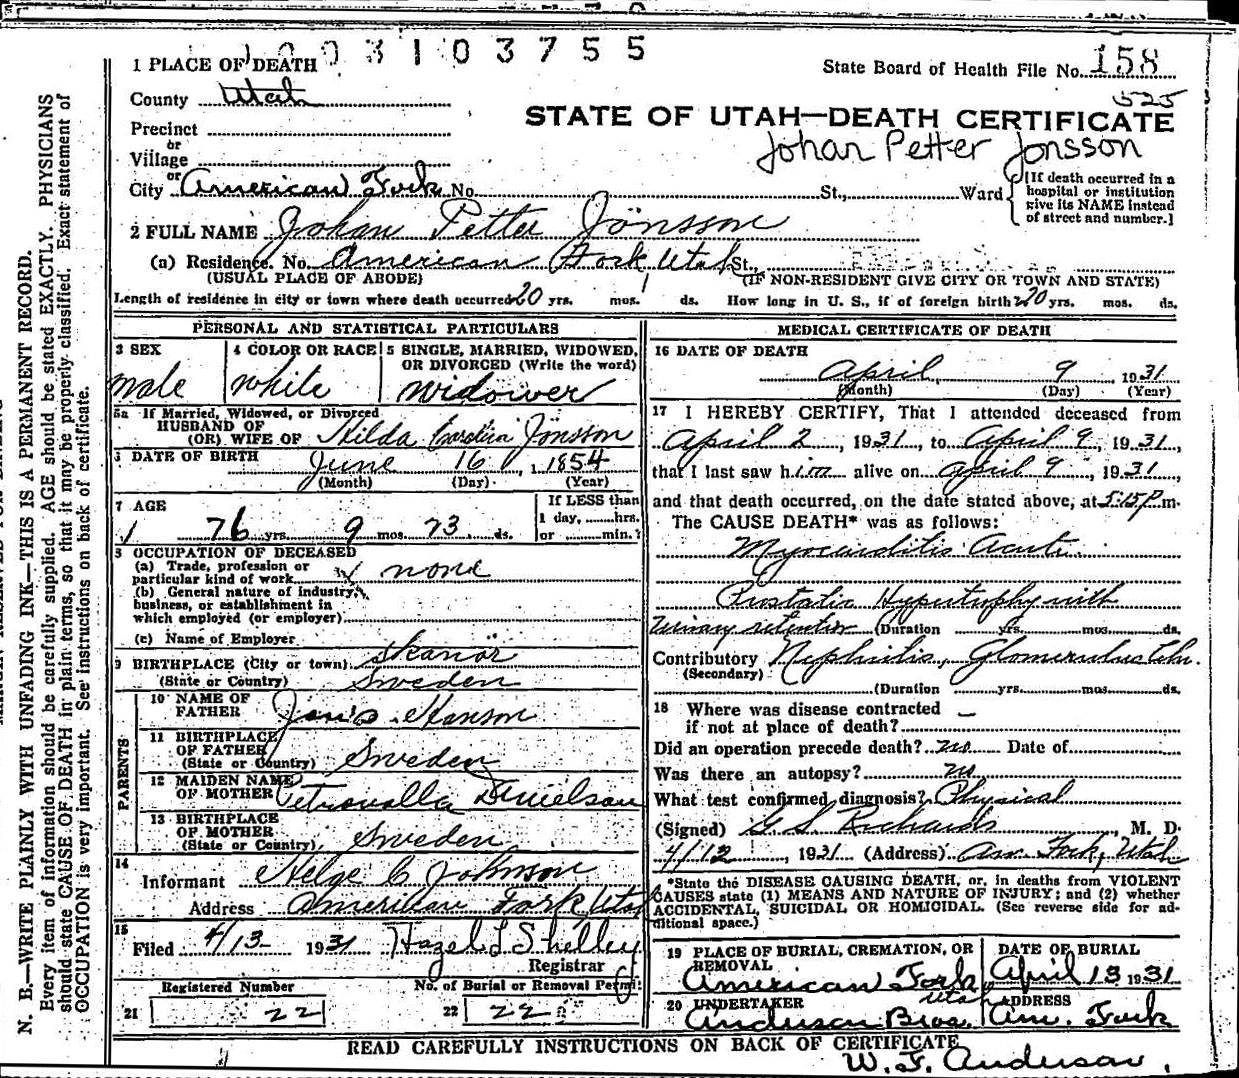 1 0 0 3 1 0 3 7 5 5
1 PLACE OF DEATH
State Board of Health File No. 158
County Utah
525
STATE OF UTAH—DEATH CERTIFICATE
Precinct
Johan Petter Jonsson
or
Village
or
City American Fork No. St., Ward
[If death occurred in a
hospital or institution
give its NAME instead
of street and number.]
2 FULL NAME Johan Petter Jönsson
(a) Residence. No. American Fork, Utah St.,
(USUAL PLACE OF ABODE) (IF NON-RESIDENT GIVE CITY OR TOWN AND STATE)
Length of residence in city or town where death occurred 20 yrs. mos. ds. How long in U. S., if of foreign birth? 20 yrs. mos. ds.
PERSONAL AND STATISTICAL PARTICULARS
3 SEX
male
4 COLOR OR RACE
white
5 SINGLE, MARRIED, WIDOWED,
OR DIVORCED (Write the word)
widower
5a If Married, Widowed, or Divorced
HUSBAND OF
(OR) WIFE OF Hilda Carolina Jönsson
6 DATE OF BIRTH June 16, 1854
(Month) (Day) (Year)
7 AGE
76 yrs. 9 mos. 23 ds.
If LESS than
1 day, hrs.
or min.?
8 OCCUPATION OF DECEASED
(a) Trade, profession or
particular kind of work none
(b) General nature of industry,
business, or establishment in
which employed (or employer)
(c) Name of Employer
9 BIRTHPLACE (City or town) Skanör
(State or Country) Sweden
PARENTS
10 NAME OF
FATHER Hanson
11 BIRTHPLACE
OF FATHER
(State or Country) Sweden
12 MAIDEN NAME
OF MOTHER Petronella Danielson
13 BIRTHPLACE
OF MOTHER
(State or Country) Sweden
14
Informant Helge C Johnson
Address American Fork Utah
15
Filed 4/13 1931 Hazel L Shelley
Registrar
Registered Number No. of Burial or Removal Permit
21 22 22 22
MEDICAL CERTIFICATE OF DEATH
16 DATE OF DEATH
April 9, 1931
(Month) (Day) (Year)
17 I HEREBY CERTIFY, That I attended deceased from
April 2, 1931, to April 9, 1931,
that I last saw him alive on April 9, 1931,
and that death occurred, on the date stated above, at 5:15 P. m.
The CAUSE DEATH* was as follows:
Myocarditis Acute
Prostatic Hypertrophy with
urinary retention (Duration yrs. mos. ds.
Contributory Nephritis, Glomerulus
(Secondary)
(Duration yrs. mos. ds.
18 Where was disease contracted
if not at place of death? —
Did an operation precede death? no Date of
Was there an autopsy? no
What test confirmed diagnosis? Physical
(Signed) G S Richards, M. D.
4/12, 1931 (Address) Am Fork, Utah
*State the DISEASE CAUSING DEATH, or, in deaths from VIOLENT
CAUSES state (1) MEANS AND NATURE OF INJURY; and (2) whether
ACCIDENTAL, SUICIDAL OR HOMICIDAL. (See reverse side for ad-
ditional space.)
19 PLACE OF BURIAL, CREMATION, OR
REMOVAL
American Fork
Utah
DATE OF BURIAL
April 13 1931
20 UNDERTAKER
Anderson Bros.
ADDRESS
Am. Fork
READ CAREFULLY INSTRUCTIONS ON BACK OF CERTIFICATE
W. F. Anderson.
N. B.—WRITE PLAINLY WITH UNFADING INK—THIS IS A PERMANENT RECORD.
Every item of information should be carefully supplied. AGE should be stated EXACTLY. PHYSICIANS
should state CAUSE OF DEATH in plain terms, so that it may be properly classified. Exact statement of
OCCUPATION is very important. See instructions on back of certificate.